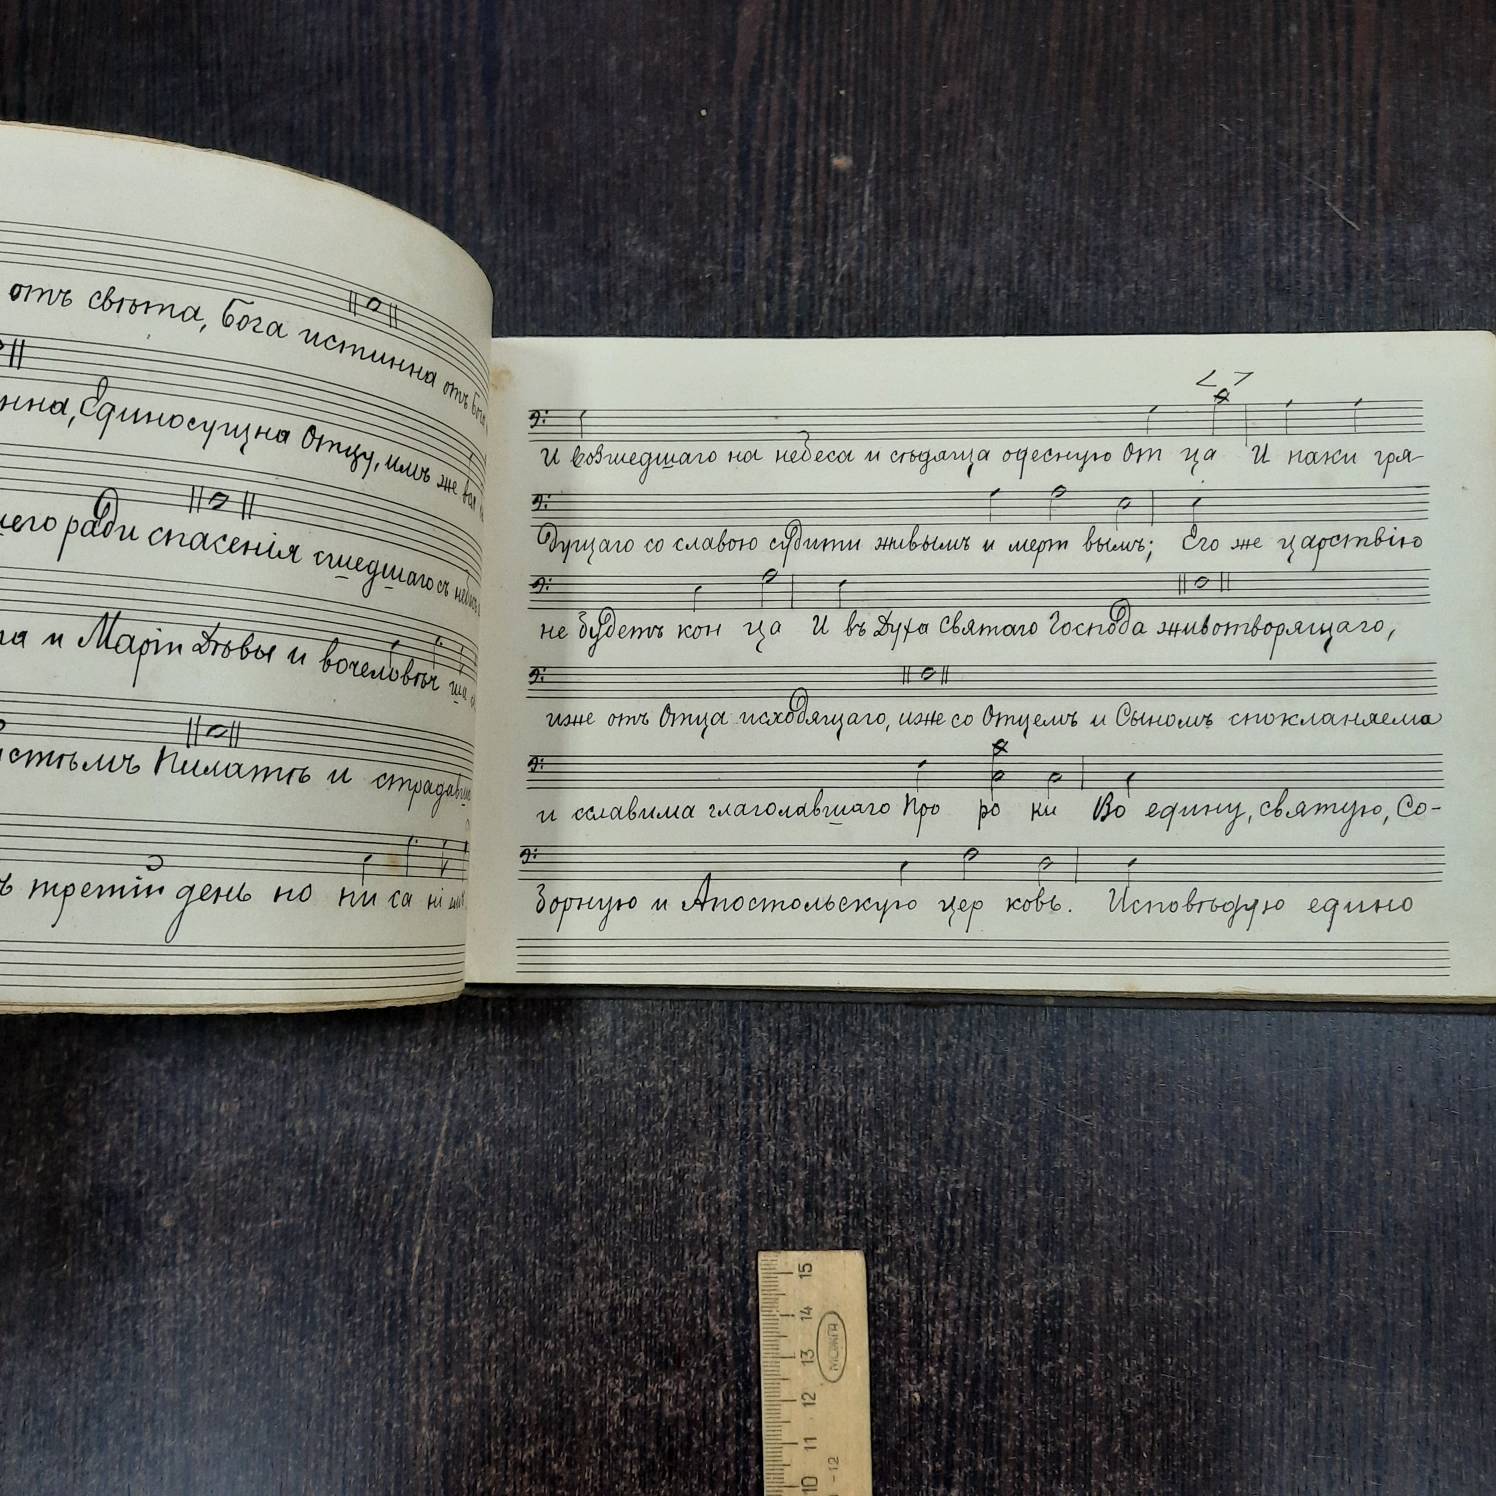 отъ свѣта, Бога истинна отъ Бога
нна, Единосущна Отцу, имъ же вся
шего ради спасенія сшедшаго съ небесъ
и Маріи Дѣвы и вочеловѣч ша
Пилатѣ и страдавша
третій день по пи са ні
И возшедшаго на небеса и сѣдяща одесную От ца И паки гря-
дущаго со славою судити живымъ и мерт вымъ; Его же царствію
не будетъ кон ца И въ Духа Святаго Господа животворящаго,
иже отъ Отца исходящаго, иже со Отцемъ и Сыномъ спокланяема
и сславима глаголавшаго Про ро ки Во едину, святую, Со-
борную и Апостольскую цер ковь. Исповѣдую едино
15
14
13
12
11
10
- 12